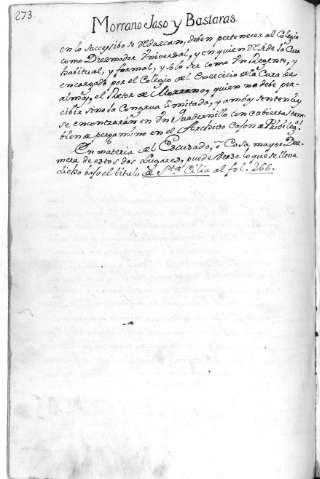 273.
Morrano Jaso y Bastaras.
en lo succesibo se deban, deben pertenecer al Colegio
como Dezmador Universal, y en quien está la Cura
habitual, y formal, y solo se como Insurgente, y
encargada por el Colegio el Exercicio de la Cura de
almas, el Retor de Morrano, quien no debe per-
cibir sino la Congrua limitada, y ambas sentencias
se encontrarán en un Quadernillo con cubiertas tam-
bien de pergamino en el Archivo Caxon de
En materia del Escusado, o Casa mayor Dez-
mera de estos dos Lugares, puede verse lo que se lleva
dicho baxo el titulo de Sta. Cilia al fol. 266.